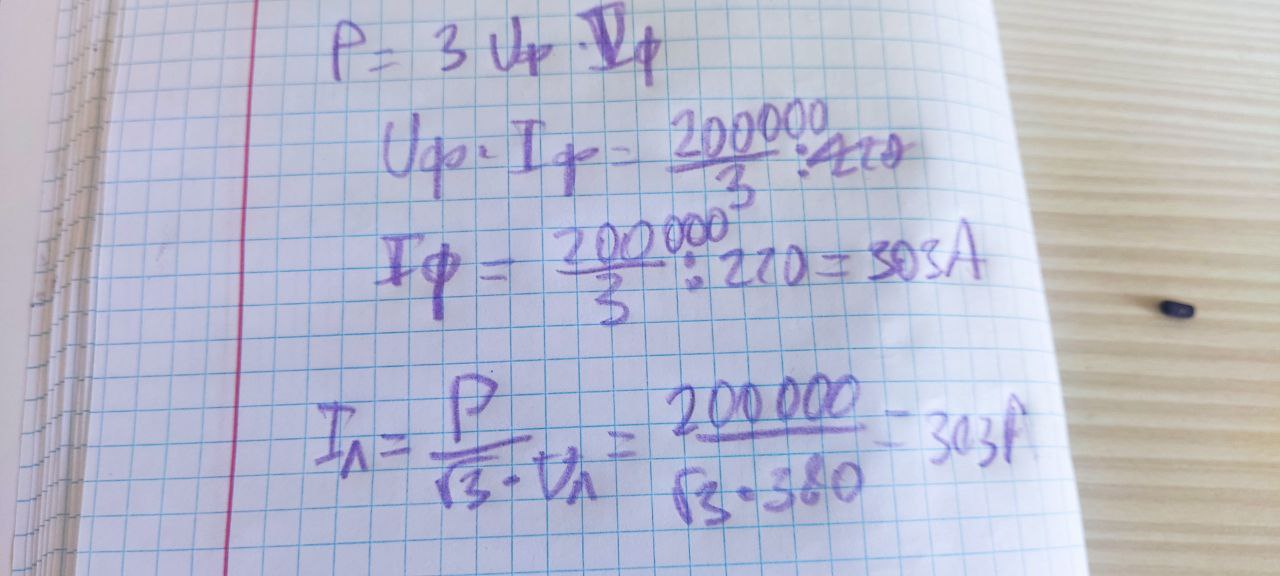 P = 3 Uф · Iф
Uф · Iф = 200000/3 :
Iф = 200000/3 : 220 = 303A
Iл = P/√3 · Uл = 200000/√3 · 380 = 303A